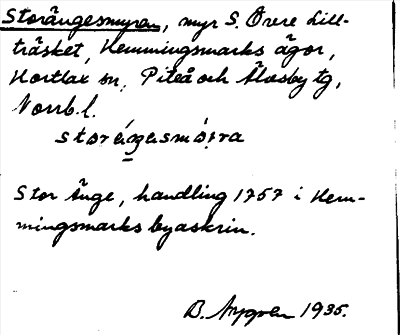 Storängesmyren, myr S. Övre Lill-
träsket, Hemmingsmarks ägor,
Hortlax sn, Piteå och Älvsby tg,
Norrb. l.
storéŋɡasmó̤i̯ra
Stor Änge, handling 1757 i Hem-
mingsmarks byaskrin.
B. Nygren 1935.